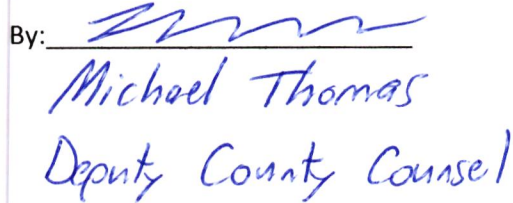 By:
Michael Thomas
Deputy County Counsel